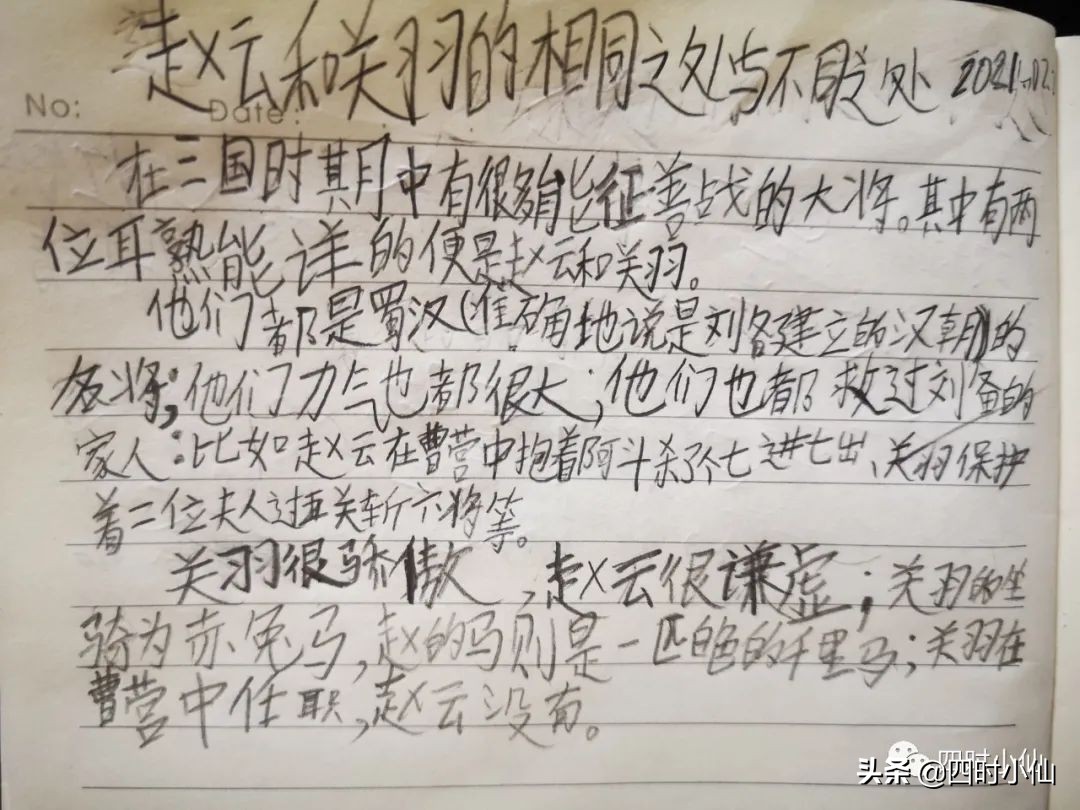 赵云和关羽的相同之处与不同之处 2021.02.
No: Date:
在三国时期中有很多能征善战的大将。其中有两
位耳熟能详的便是赵云和关羽。
他们都是蜀汉(准确地说是刘备建立的汉朝)的
名将;他们力气也都很大;他们也都救过刘备的
家人:比如赵云在曹营中抱着阿斗杀了个七进七出、关羽保护
着二位夫人过五关斩六将等。
关羽很骄傲,赵云很谦虚;关羽的坐
骑为赤兔马,赵的马则是一匹白色的千里马;关羽在
曹营中任职,赵云没有。
四时小仙
头条@四时小仙